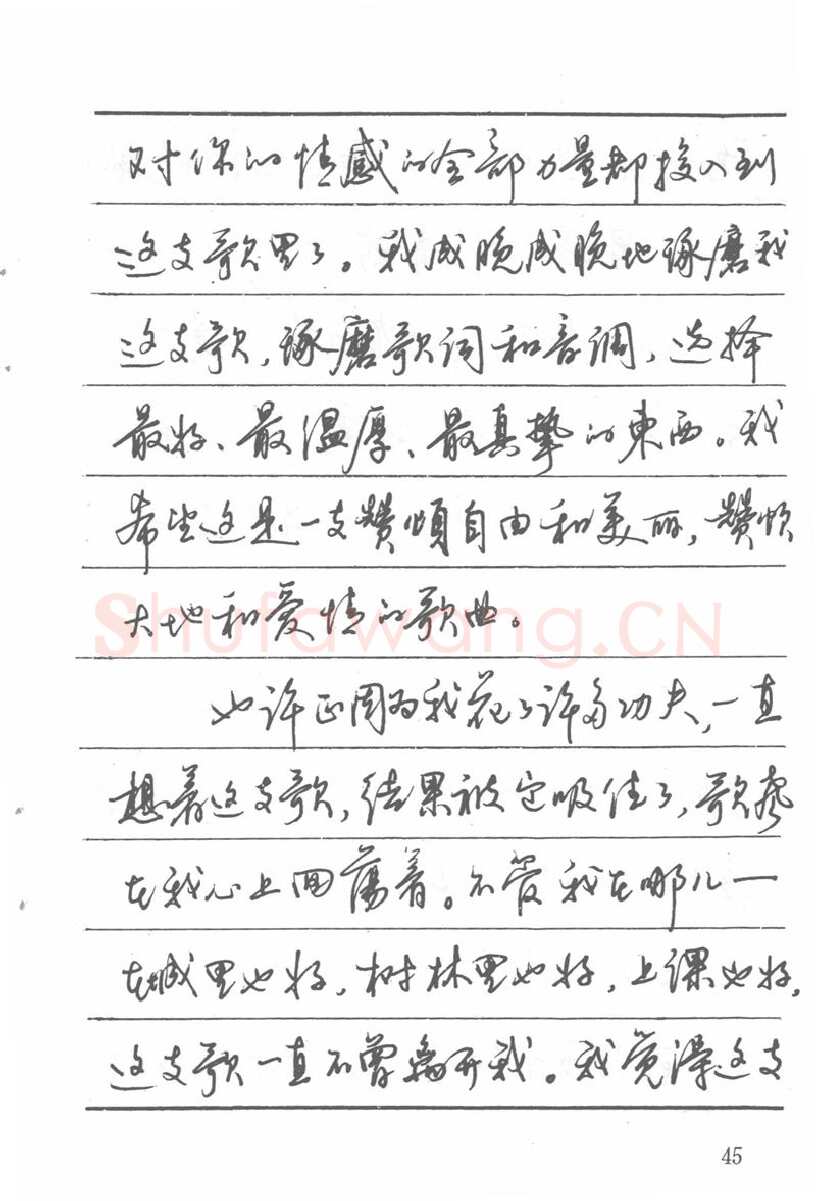 对你的情感的全部力量都投入到
这支歌里了。我成晚成晚地琢磨我
这支歌，琢磨歌词和音调，选择
最好、最温厚、最真挚的東西。我
希望这是一支赞頌自由和美丽，赞頌
大地和爱情的歌曲。
也许正因为我花了许多功夫，一直
想着这支歌，结果被它吸住了，歌声
在我心上回荡着。不管我在哪儿一
在城里也好，树林里也好，上课也好，
这支歌一直不曾离开我。我觉得这支
Shufawang.CN
45